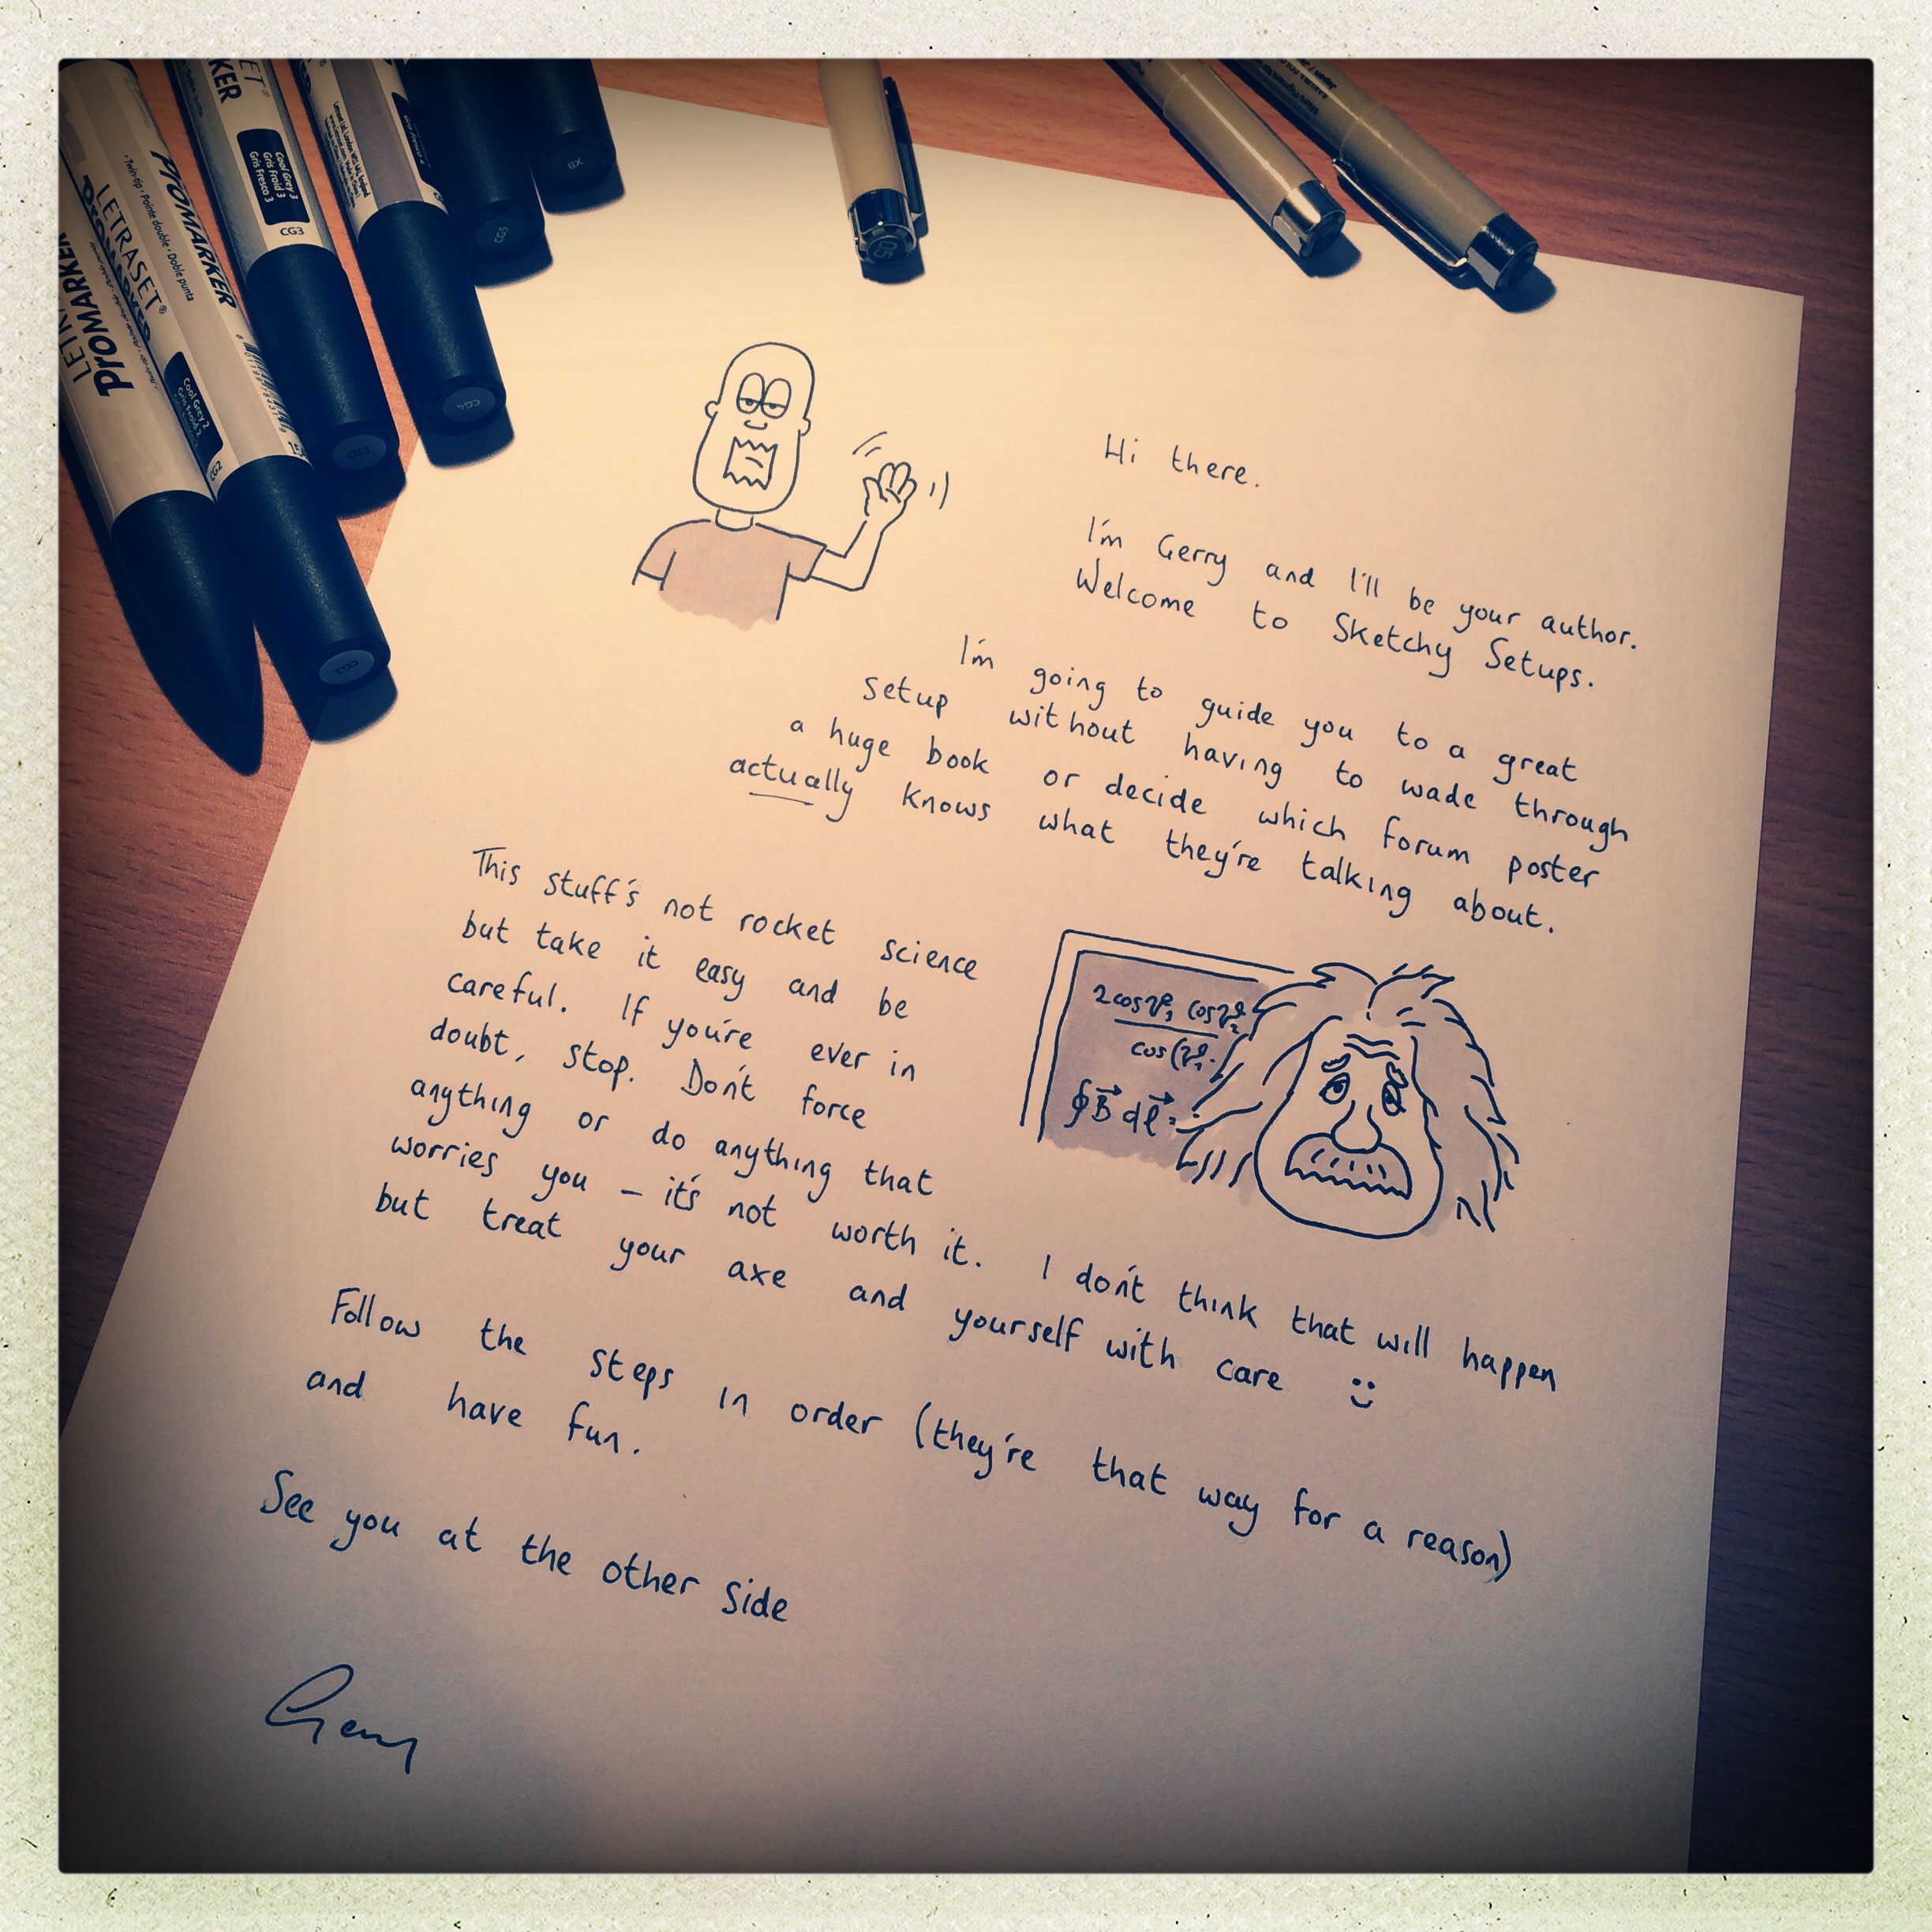 LETRASET
PROMARKER
LETRASET®
PROMARKER
Twin-tip • Pointe double • Doble punta
Cool Grey 2
Gris Froid 2
Gris Fresco 2
CG2
CG2
KER
Cool Grey 3
Gris Froid 3
Gris Fresco 3
CG3
CG3
CG4
CG5
BX
05
Hi there.
I'm Gerry and I'll be your author.
Welcome to Sketchy Setups.
I'm going to guide you to a great
setup without having to wade through
a huge book or decide which forum poster
actually knows what they're talking about.
This stuff's not rocket science
but take it easy and be
careful. If you're ever in
doubt, stop. Don't force
anything or do anything that
worries you – it's not worth it. I don't think that will happen
but treat your axe and yourself with care :)
2cosϑ₁ cosϑ₂
cos(ϑ₁
∮B⃗ dℓ⃗ =
Follow the steps in order (they're that way for a reason)
and have fun.
See you at the other side
Gerry